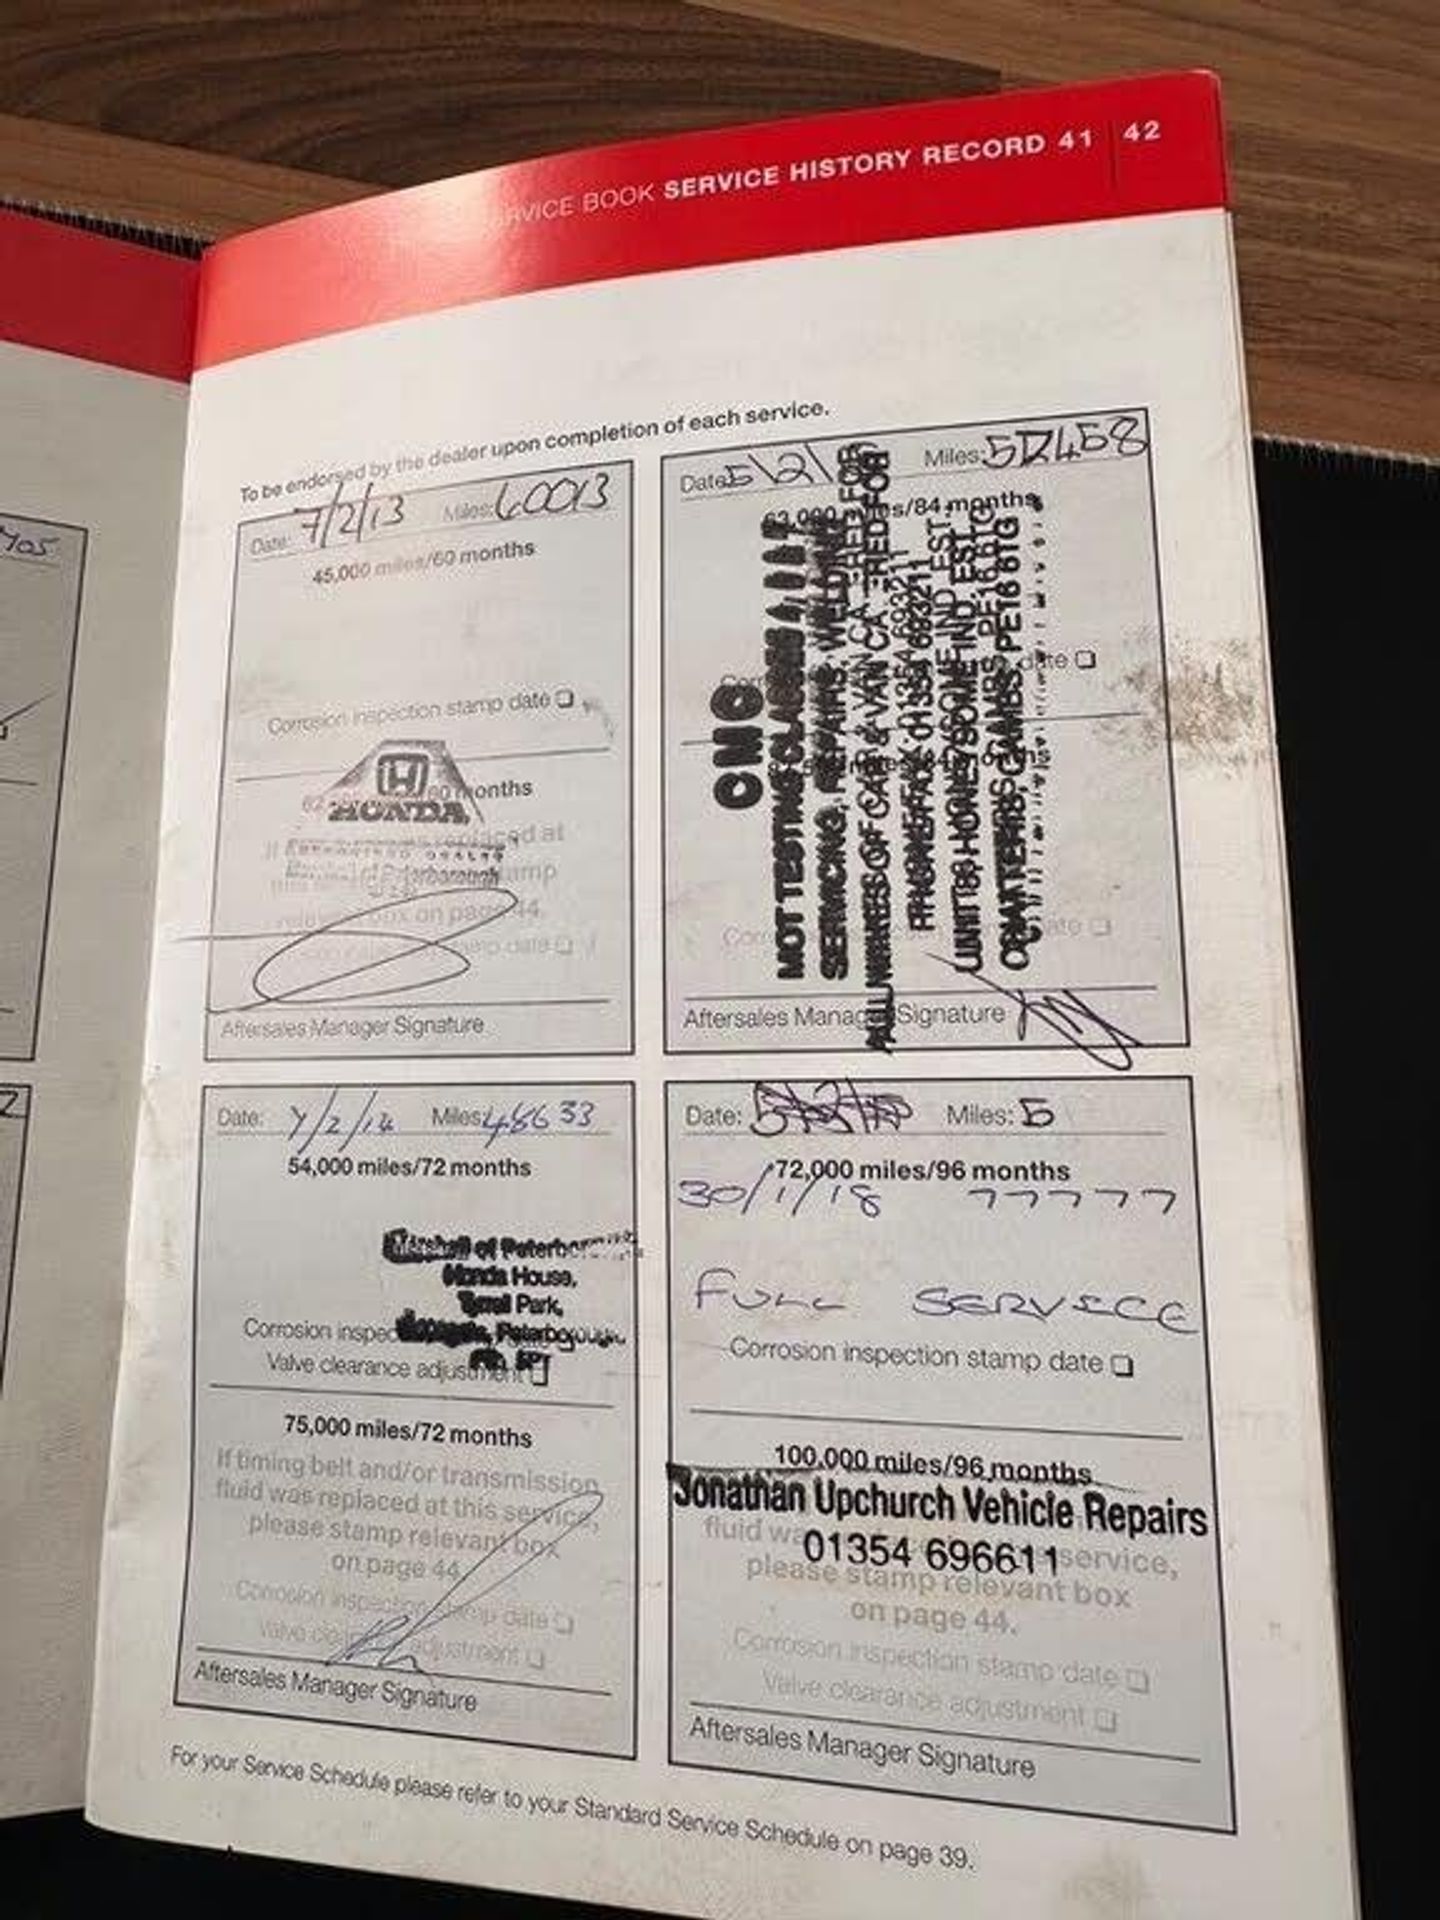 SERVICE BOOK SERVICE HISTORY RECORD 41 42
To be endorsed by the dealer upon completion of each service.
Date: 7/2/13 Miles:
45,000 miles/60 months
Corrosion inspection stamp date
months
HONDA
of Peterborough
box on page 44.
Aftersales Manager Signature
Date: 5/2/ Miles:
63,000 miles/84 months
CMG
MOT TESTING CLASSES
SERVICING, REPAIRS, WELDING
ALL MAKES OF CAR & VAN CATERED FOR
PHONE/FAX 01354 693211
HONEYSOME IND. EST.
CHATTERIS, CAMBS, PE16 6TG
Aftersales Manager Signature
Date: /2/14 Miles: 48633
54,000 miles/72 months
Marshall of Peterborough
Honda House,
Park,
Peterborough,
Corrosion inspec
Valve clearance adjustment
75,000 miles/72 months
If timing belt and/or transmission
fluid was replaced at this service,
please stamp relevant box
on page 44.
Corrosion inspection stamp date
Valve clearance adjustment
Aftersales Manager Signature
Date: Miles: 5
72,000 miles/96 months
30/1/18 77777
FULL SERVICE
Corrosion inspection stamp date
100,000 miles/96 months
Jonathan Upchurch Vehicle Repairs
01354 696611
fluid was service,
please stamp relevant box
on page 44.
Corrosion inspection stamp date
Valve clearance adjustment
Aftersales Manager Signature
For your Service Schedule please refer to your Standard Service Schedule on page 39.